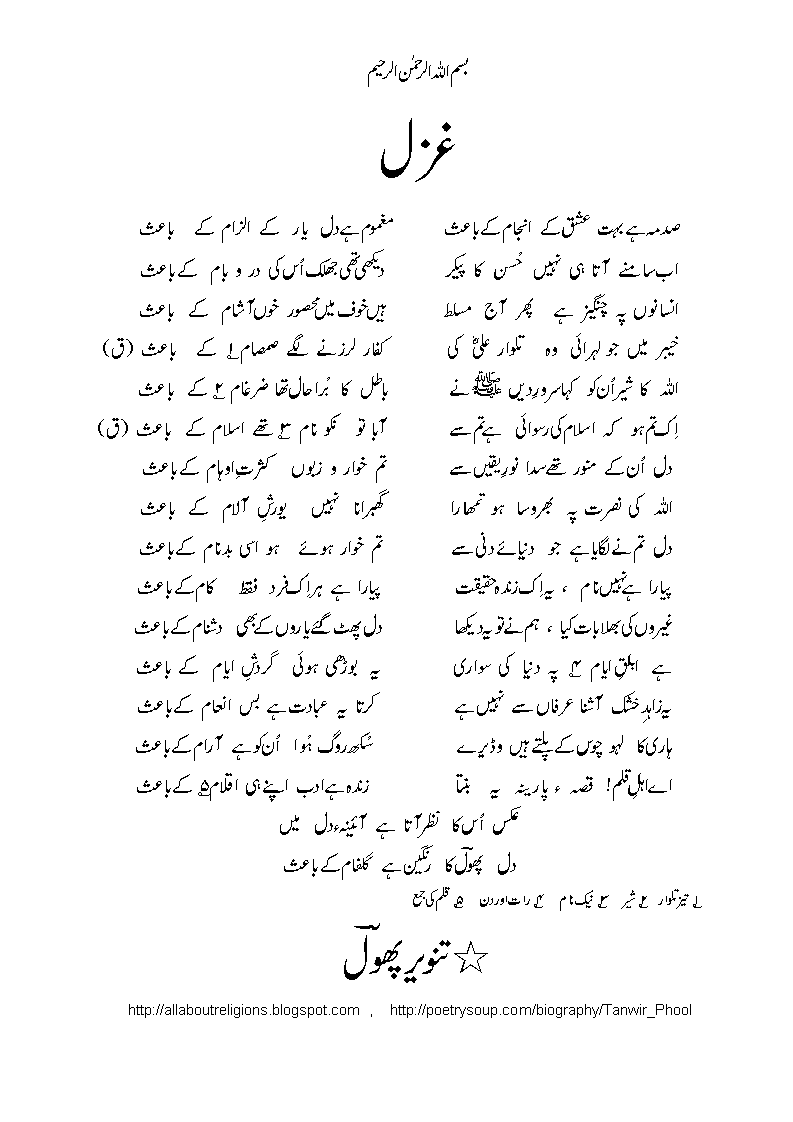 بسم اللہ الرحمٰن الرحیم
غزل
صدمہ ہے بہت عشق کے انجام کے باعث مغموم ہے دل یار کے الزام کے باعث
اب سامنے آتا ہی نہیں حُسن کا پیکر دیکھی تھی جھلک اُس کی در و بام کے باعث
انسانوں پہ چنگیز ہے پھر آج مسلط ہیں خوف میں محصور خوں آشام کے باعث
خیبر میں جو لہرائی وہ تلوار علیؓ کی کفار لرزنے لگے صمصام ۱؎ کے باعث (ق)
اللہ کا شیر اُن کو کہا سرورِ دیں ﷺ نے باطل کا بُرا حال تھا ضرغام ۲؎ کے باعث
اِک تم ہو کہ اسلام کی رسوائی ہے تم سے آبا تو نکو نام ۳؎ تھے اسلام کے باعث (ق)
دل اُن کے منور تھے سدا نورِ یقیں سے تم خوار و زبوں کثرتِ اوہام کے باعث
اللہ کی نصرت پہ بھروسا ہو تمھارا گھبرانا نہیں یورشِ آلام کے باعث
دل تم نے لگایا ہے جو دنیائے دنی سے تم خوار ہوئے ہو اسی بدنام کے باعث
پیارا ہے نہیں نام ، یہ اِک زندہ حقیقت پیارا ہے ہر اِک فرد فقط کام کے باعث
غیروں کی بھلا بات کیا ، ہم نے تو یہ دیکھا دل پھٹ گئے یاروں کے بھی دشنام کے باعث
ہے ابلقِ ایام ۴؎ پہ دنیا کی سواری یہ بوڑھی ہوئی گردشِ ایام کے باعث
یہ زاہدِ خشک آشنا عرفاں سے نہیں ہے کرتا یہ عبادت ہے بس انعام کے باعث
ہاری کا لہو چوس کے پلتے ہیں وڈیرے سُکھ روگ ہُوا اُن کو ہے آرام کے باعث
اے اہلِ قلم! قصہء پارینہ یہ بنتا زندہ ہے ادب اپنے ہی اقلام ۵؎ کے باعث
عکس اُس کا نظر آتا ہے آئینہء دل میں
دل پھولؔ کا رنگین ہے گلفام کے باعث
۱؎ تیز تلوار ۲؎ شیر ۳؎ نیک نام ۴؎ رات اور دن ۵؎ قلم کی جمع
☆ تنویر پھولؔ
http://allaboutreligions.blogspot.com , http://poetrysoup.com/biography/Tanwir_Phool